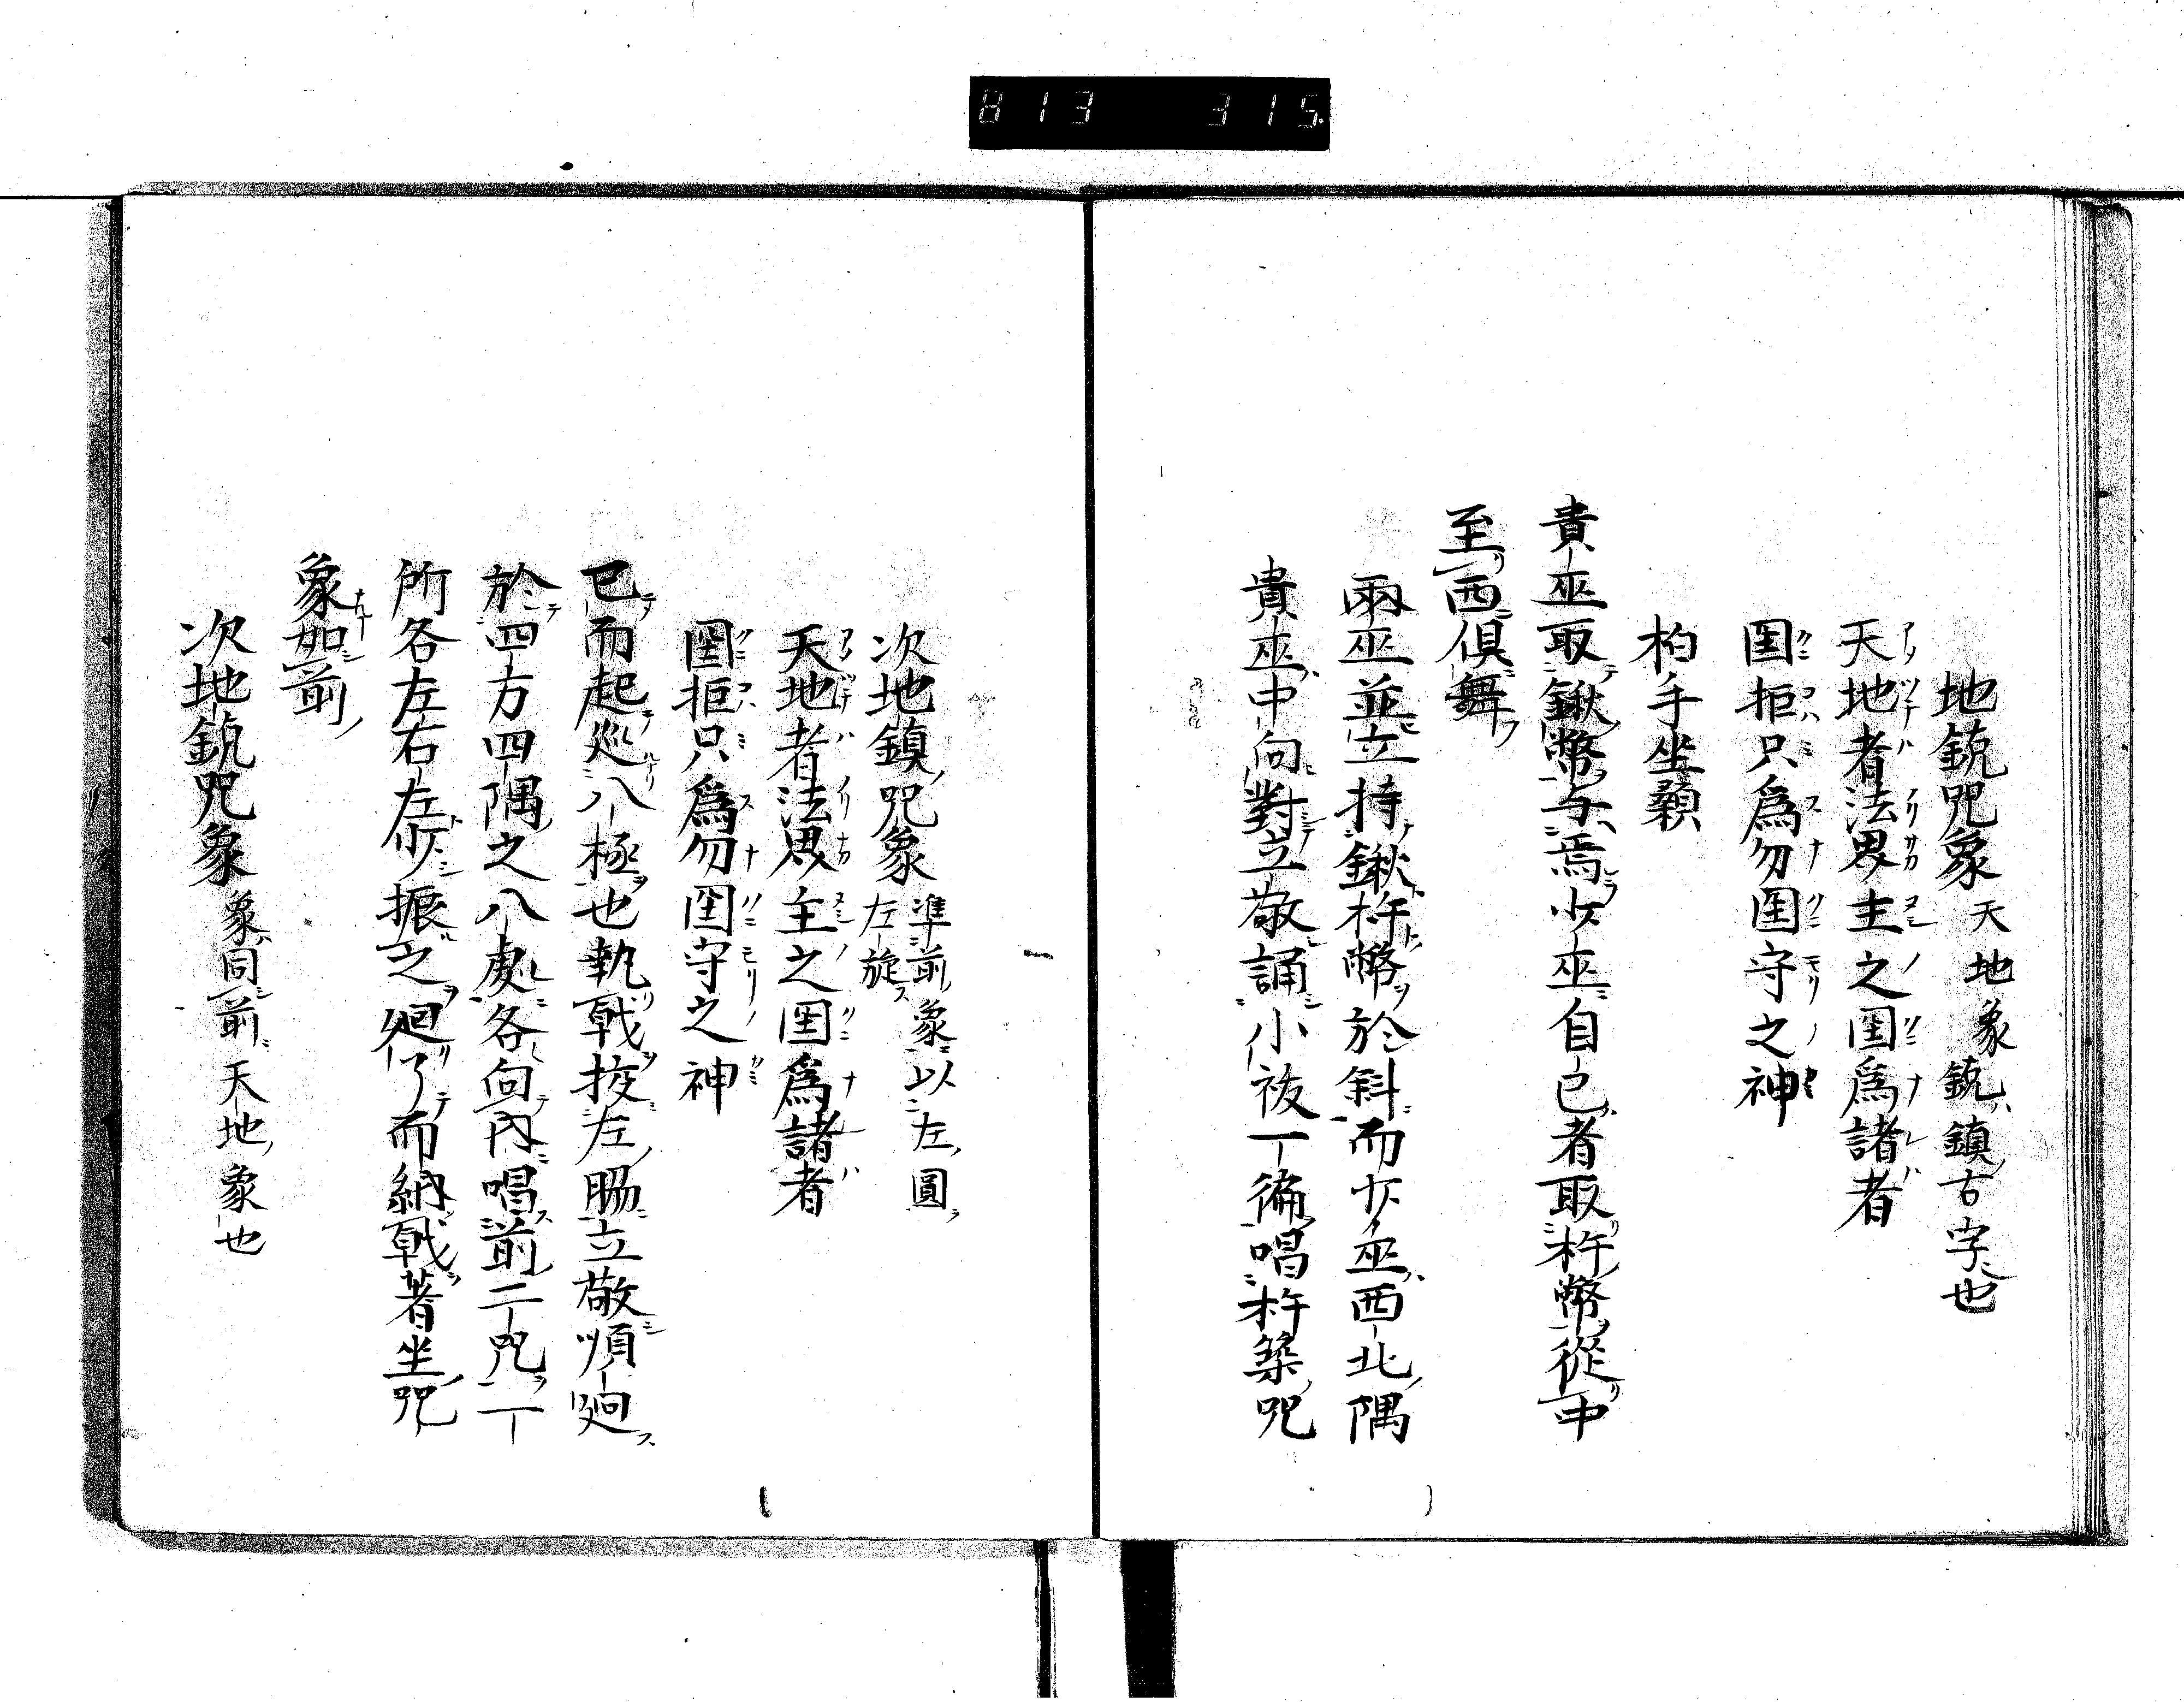 813 315.
地鈗咒象 天地象鈗鎮古字也
天地者法男主之国爲諸者
国拒只爲勿国守之神
拍手坐顙
貴巫取鍬幣与焉少巫自已者取杵幣從中
至西俱舞
兩巫並立持鍬杵幣於斜而少巫西北隅
貴巫中向對立敬誦小祓一徧唱杵築咒
次地鎮咒象 準前象以左圓
左旋
天地者法男主之国爲諸者
国拒只爲勿国守之神
已而起巡八極也執戟按左腸立敬順廻
於四方四隅之八處各向内唱前二咒一
所各左右左少振之廻了而納戟著坐咒
象如前
次地鈗咒象 象同前天地象也